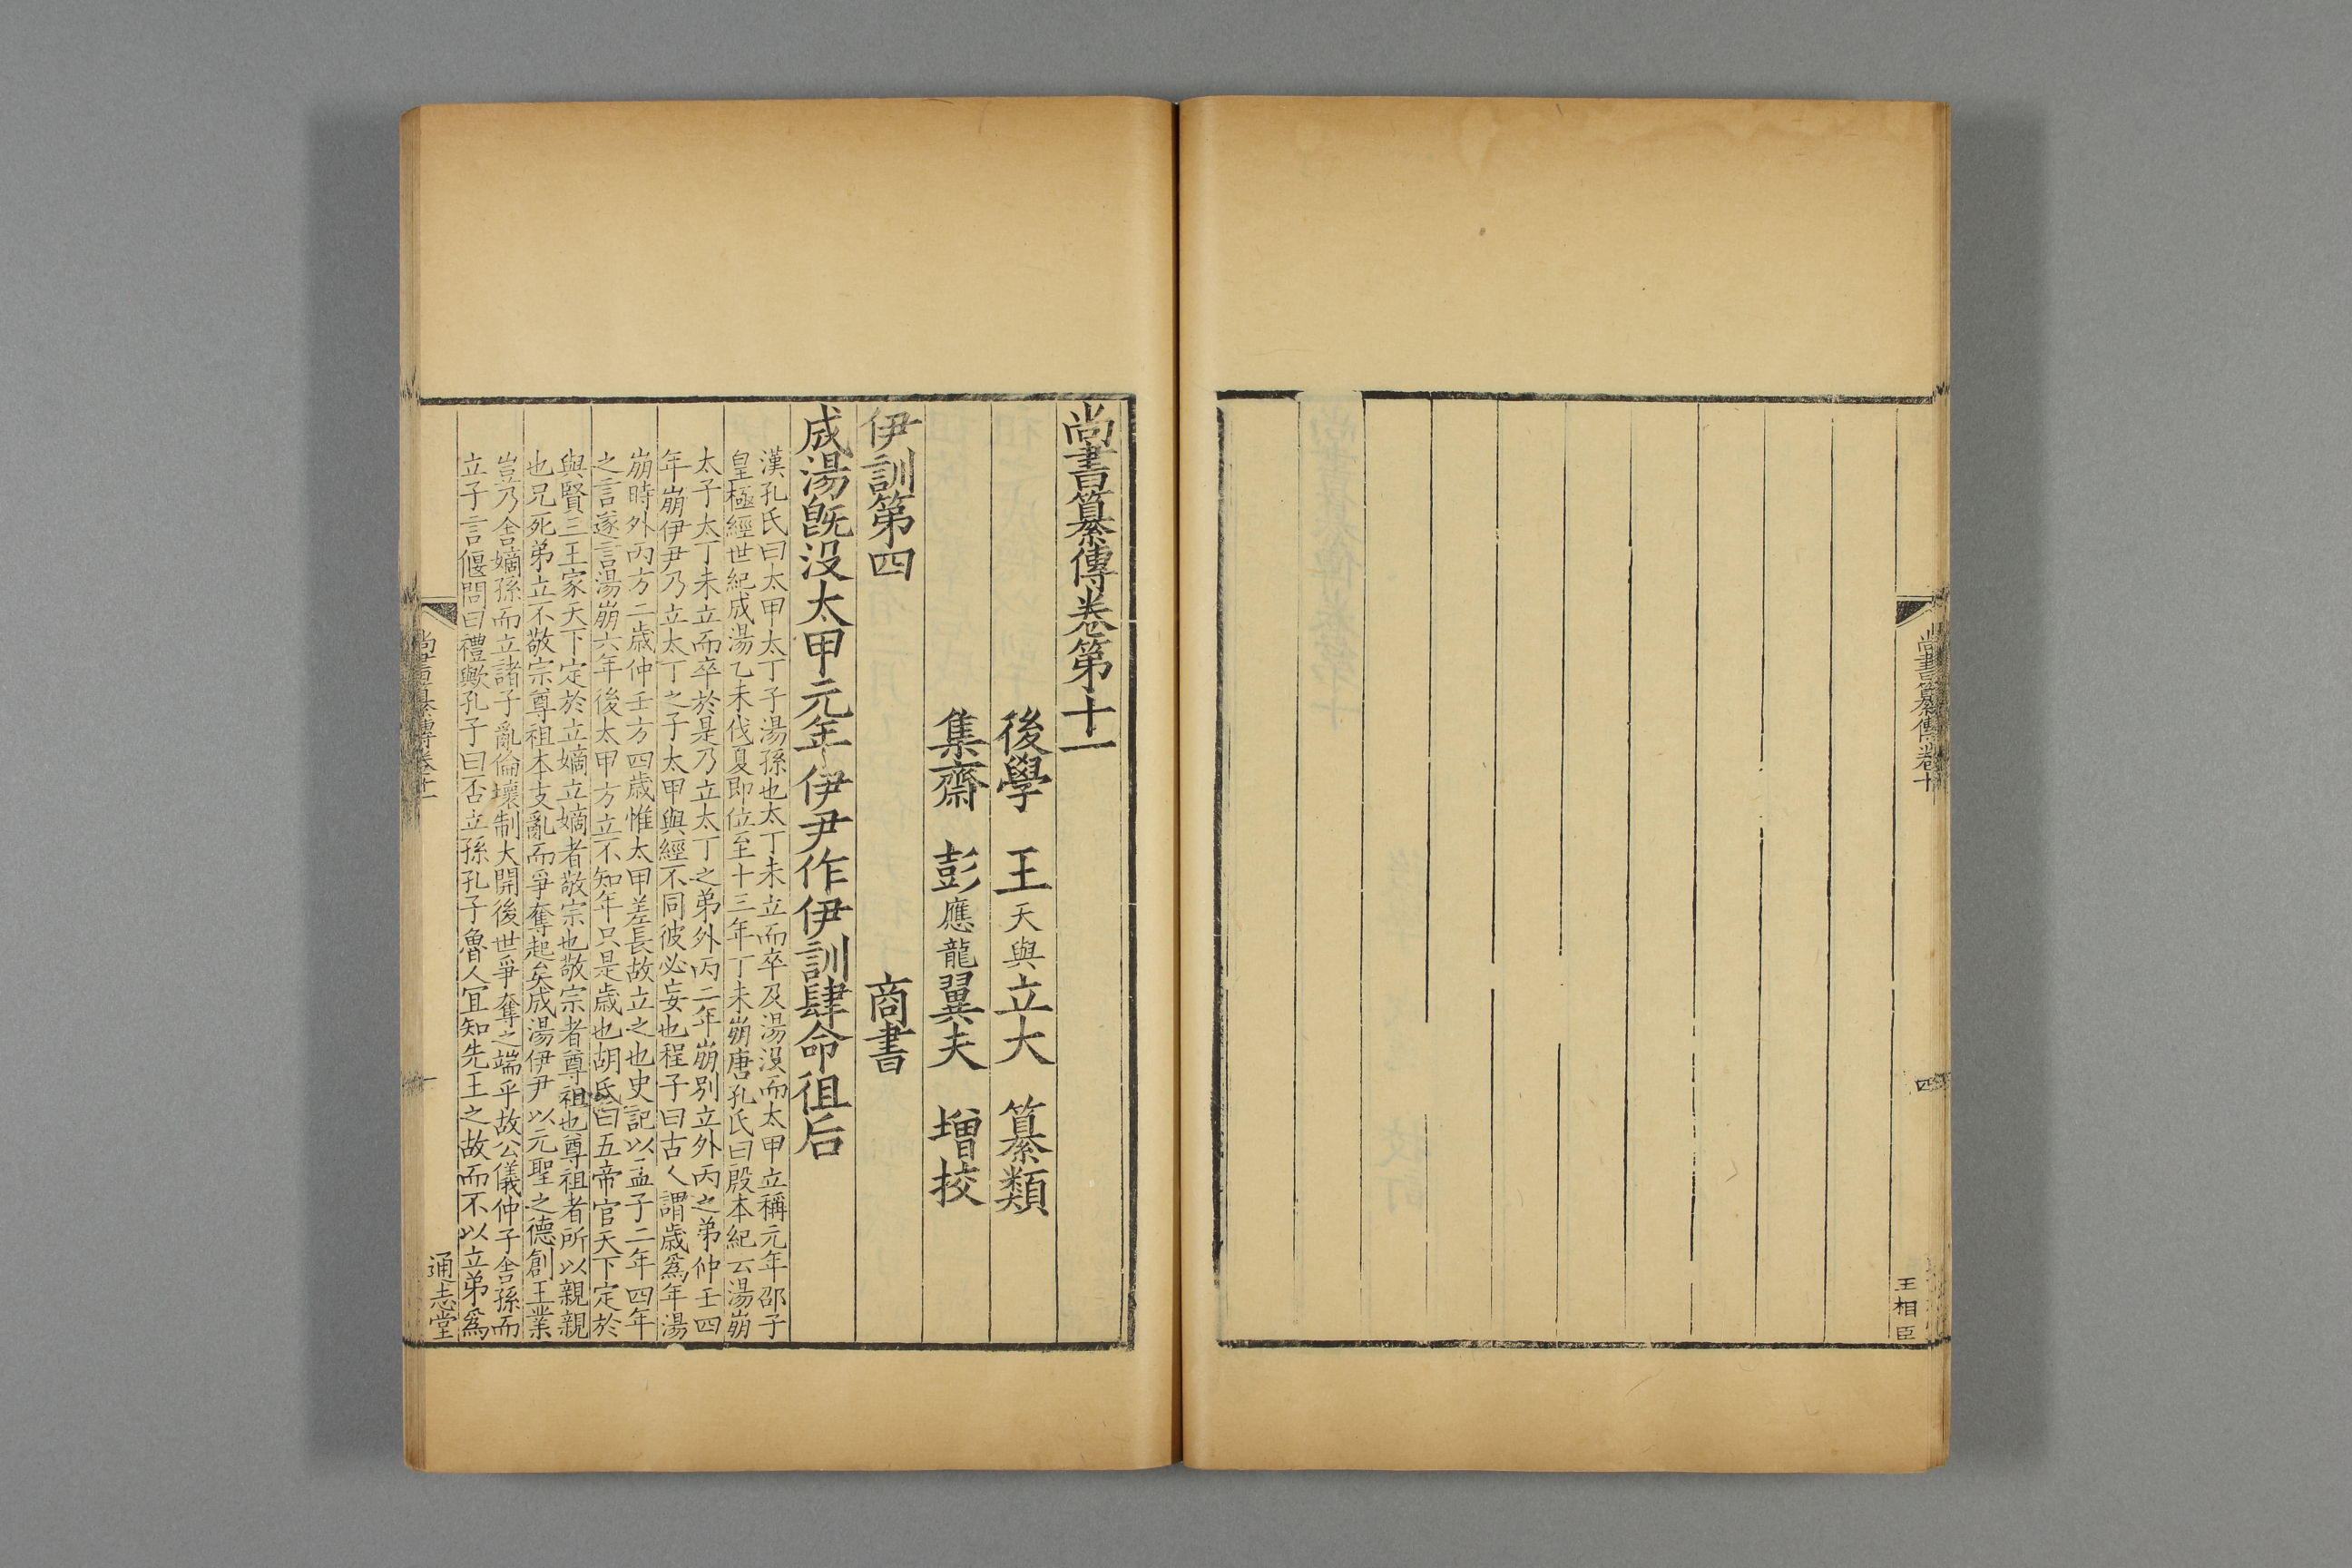 尚書纂傳卷十
四
王相臣
尚書纂傳卷第十一
後學　王天與立大　纂類
集齋　彭應龍翼夫　增挍
伊訓第四　商書
成湯旣没太甲元年伊尹作伊訓肆命徂后
漢孔氏曰太甲太丁子湯孫也太丁未立而卒及湯沒而太甲立稱元年邵子
皇極經世紀成湯乙未伐夏即位至十三年丁未崩唐孔氏曰殷本紀云湯崩
太子太丁未立而卒於是乃立太丁之弟外丙二年崩別立外丙之弟仲壬四
年崩伊尹乃立太丁之子太甲與經不同彼必妄也程子曰古人謂歳爲年湯
崩時外丙方二歳仲壬方四歳惟太甲差長故立之也史記以孟子二年四年
之言遂言湯崩六年後太甲方立不知年只是歳也胡氏曰五帝官天下定於
與賢三王家天下定於立嫡立嫡者敬宗也敬宗者尊祖也尊祖者所以親親
也兄死弟立不敬宗尊祖本支亂而爭奪起矣成湯伊尹以元聖之德創王業
豈乃舎嫡孫而立諸子亂倫壞制大開後世爭奪之端乎故公儀仲子舎孫而
立子言偃問曰禮歟孔子曰否立孫孔子魯人冝知先王之故而不以立弟爲
尚書纂傳卷十一
一
通志堂